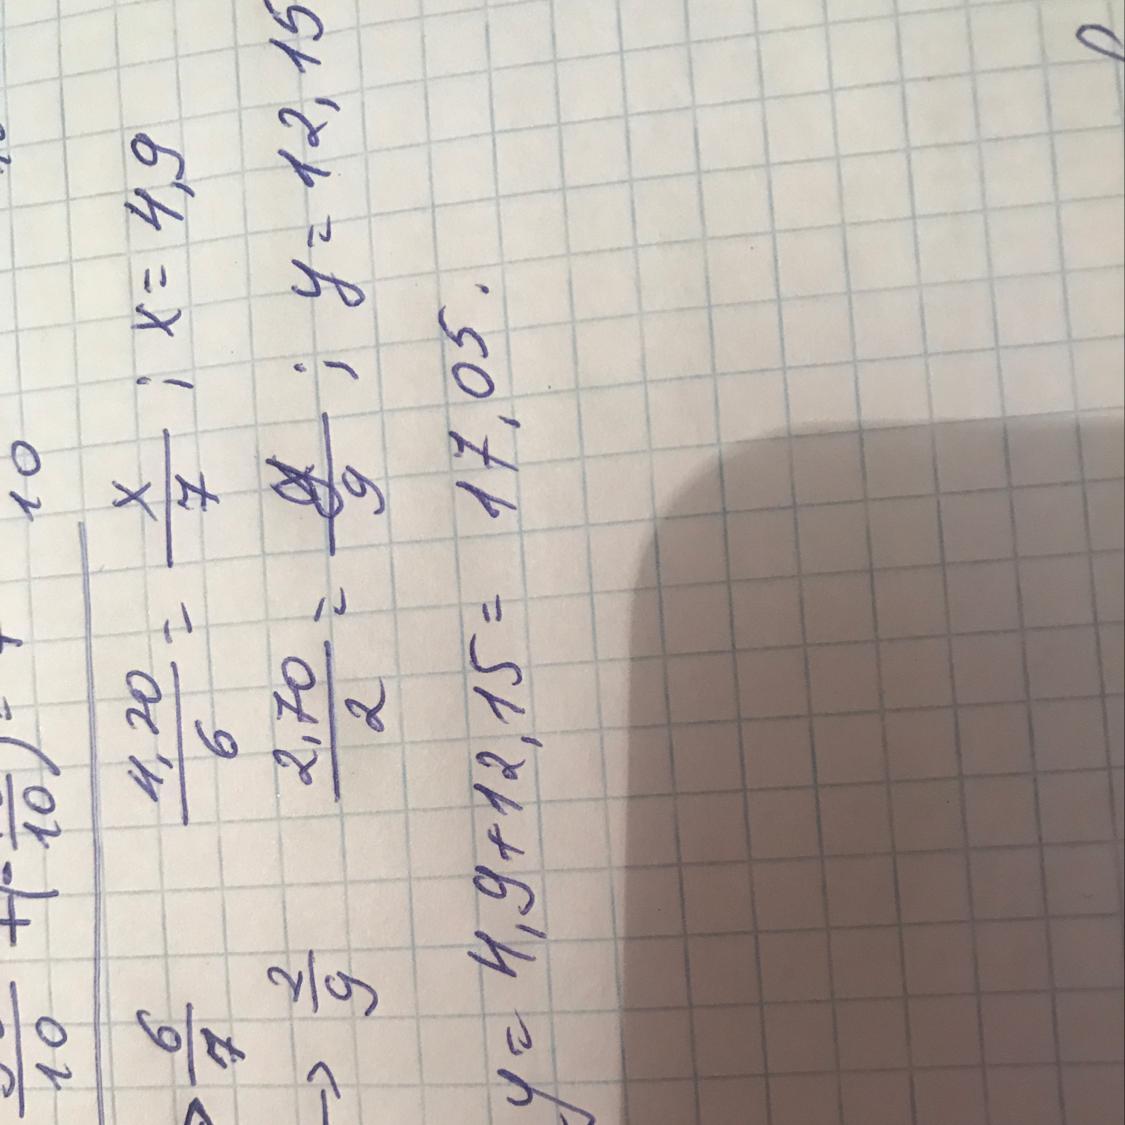 10 + (- 10) = 10
> 6/7 4,20/6 = x/7 ; x = 4,9
-> 2/9 2,70/2 = y/9 ; y = 12,15
y = 4,9+12,15 = 17,05.